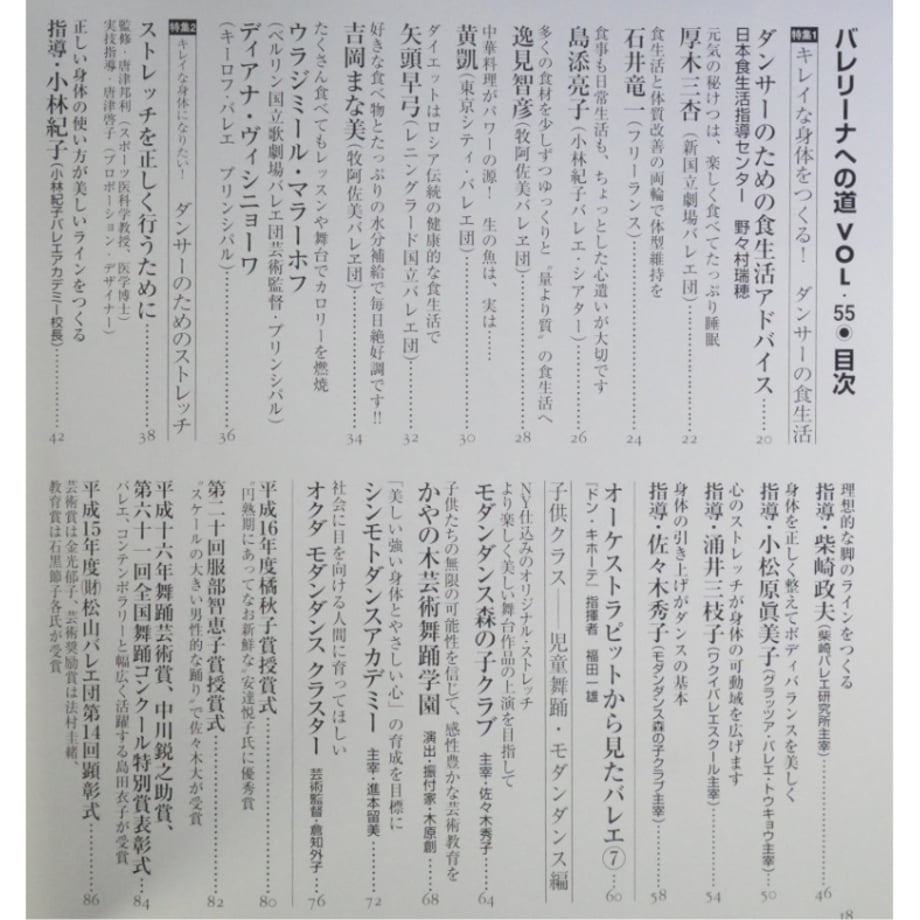 バレリーナへの道 VOL・55◉目次
特集1 キレイな身体をつくる！ ダンサーの食生活
ダンサーのための食生活アドバイス……20
日本食生活指導センター 野々村瑞穂
元気の秘けつは、楽しく食べてたっぷり睡眠
厚木三杏（新国立劇場バレエ団）……22
食生活と体質改善の両輪で体型維持を
石井竜一（フリーランス）……24
食事も日常生活も、ちょっとした心遣いが大切です
島添亮子（小林紀子バレエ・シアター）……26
多くの食材を少しずつゆっくりと〝量より質〟の食生活へ
逸見智彦（牧阿佐美バレヱ団）……28
中華料理がパワーの源！ 生の魚は、実は……
黄凱（東京シティ・バレエ団）……30
ダイエットはロシア伝統の健康的な食生活で
矢頭早弓（レニングラード国立バレエ団）……32
好きな食べ物とたっぷりの水分補給で毎日絶好調です!!
吉岡まな美（牧阿佐美バレヱ団）……34
たくさん食べてもレッスンや舞台でカロリーを燃焼
ウラジミール・マラーホフ
（ベルリン国立歌劇場バレエ団芸術監督・プリンシパル）
ディアナ・ヴィシニョーワ
（キーロフ・バレエ プリンシパル）……36
特集2 キレイな身体になりたい！ ダンサーのためのストレッチ
ストレッチを正しく行うために……38
監修・唐津邦利（スポーツ医科学教授、医学博士）
実技指導・唐津啓子（プロポーション・デザイナー）
正しい身体の使い方が美しいラインをつくる
指導・小林紀子（小林紀子バレエアカデミー校長）……42
理想的な脚のラインをつくる
指導・柴崎政夫（柴崎バレエ研究所主宰）……46
身体を正しく整えてボディバランスを美しく
指導・小松原眞美子（グラッツァ・バレエ・トウキョウ主宰）……50
心のストレッチが身体の可動域を広げます
指導・涌井三枝子（ワクイバレエスクール主宰）……54
身体の引き上げがダンスの基本
指導・佐々木秀子（モダンダンス森の子クラブ主宰）……58
オーケストラピットから見たバレエ⑦……60
『ドン・キホーテ』指揮者 福田一雄
子供クラス――児童舞踊・モダンダンス編
NY仕込みのオリジナル・ストレッチ
より楽しく美しい舞台作品の上演を目指して
モダンダンス森の子クラブ 主宰・佐々木秀子……64
子供たちの無限の可能性を信じて、感性豊かな芸術教育を
かやの木芸術舞踊学園 演出・振付家・木原創……68
「美しい強い身体とやさしい心」の育成を目標に
シンモトダンスアカデミー 主宰・進本留美……72
社会に目を向ける人間に育ってほしい
オクダ モダンダンス クラスター 芸術監督・倉知外子……76
平成16年度橘秋子賞授賞式……80
〝円熟期にあってなお新鮮な〟安達悦子氏に優秀賞
第二十回服部智恵子賞授賞式……82
〝スケールの大きい男性的な踊り〟で佐々木大が受賞
平成十六年舞踊芸術賞、中川鋭之助賞、
第六十一回全国舞踊コンクール特別賞表彰式……84
バレエ、コンテンポラリーと幅広く活躍する島田衣子が受賞
平成15年度㈶松山バレエ団第14回顕彰式……86
芸術賞は金光郁子、芸術奨励賞は法村圭緒、
教育賞は石黒節子各氏が受賞
18